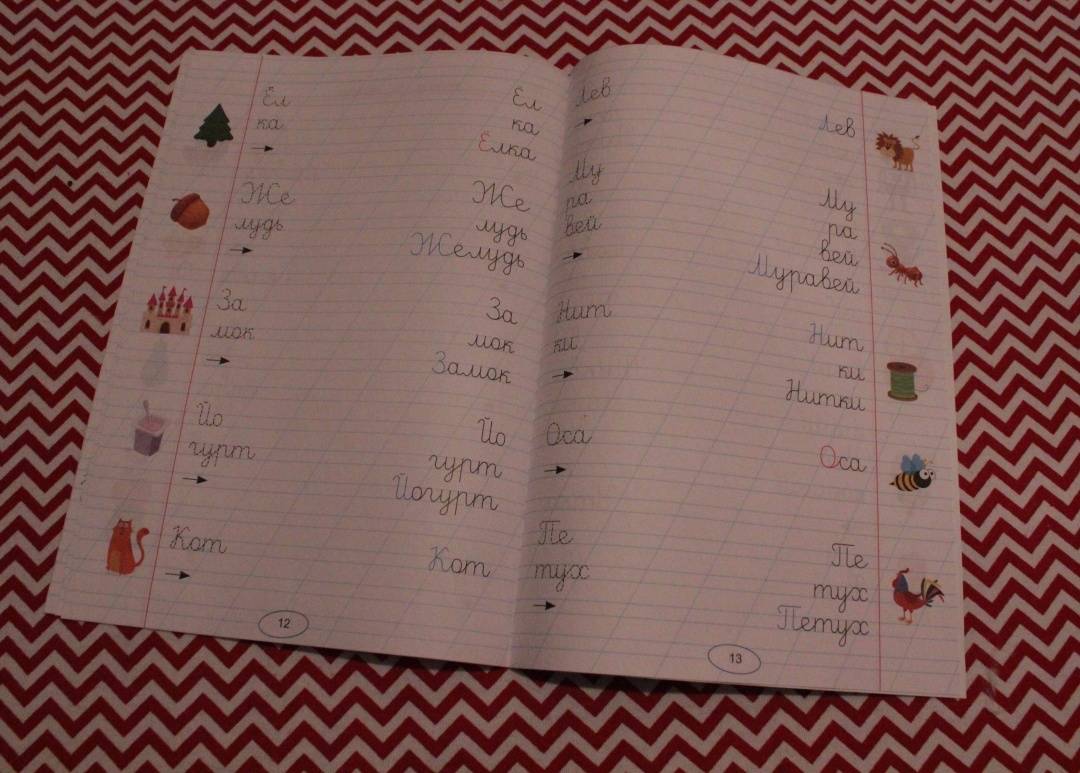 Ёл Ёл
ка ка
→ Ёлка
Же Же
лудь лудь
→ Желудь
За За
мок мок
→ Замок
Йо Йо
гурт гурт
→ Йогурт
Кот Кот
→
12
Лев Лев
→
Му Му
ра ра
вей вей
→ Муравей
Нит Нит
ки ки
→ Нитки
Оса Оса
→
Пе Пе
тух тух
→ Петух
13